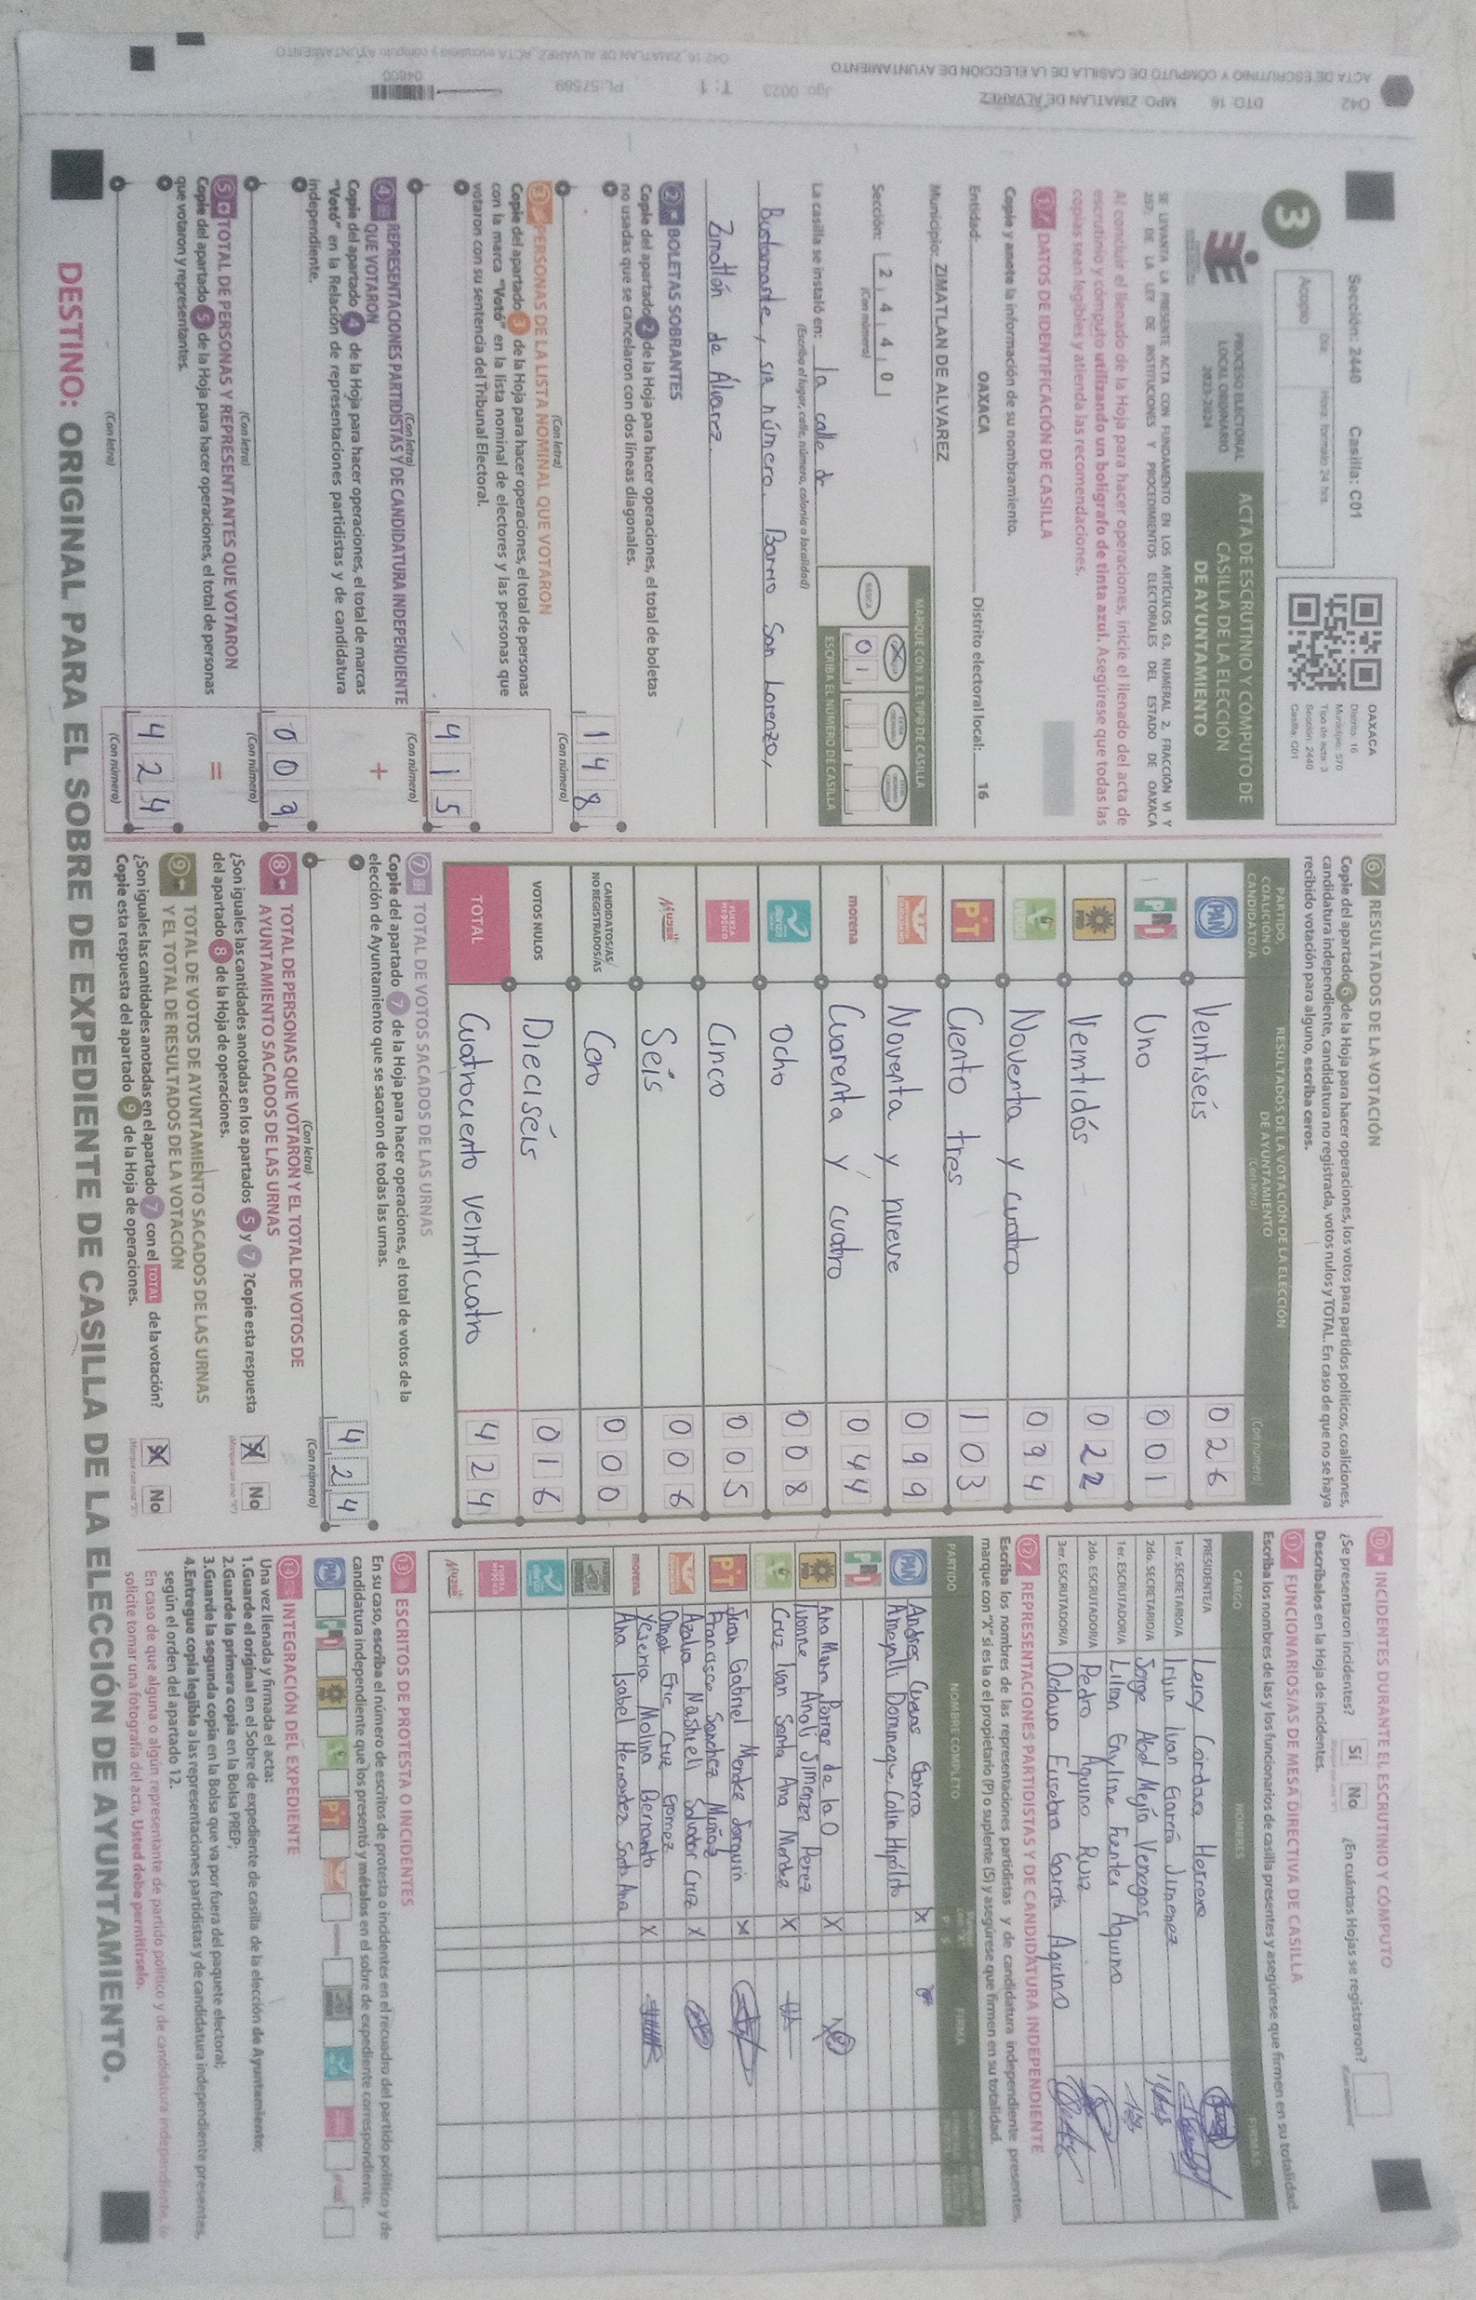 Sección: 2440 Casilla: C01
Acopio
Día
Hora: formato 24 hrs.
3
OAXACA
Distrito: 16
Municipio: 570
Tipo de acta: 3
Sección: 2440
Casilla: C01
PROCESO ELECTORAL
LOCAL ORDINARIO
2023-2024
ACTA DE ESCRUTINIO Y CÓMPUTO DE
CASILLA DE LA ELECCIÓN
DE AYUNTAMIENTO
SE LEVANTA LA PRESENTE ACTA CON FUNDAMENTO EN LOS ARTÍCULOS 63, NUMERAL 2, FRACCIÓN VI Y
257; DE LA LEY DE INSTITUCIONES Y PROCEDIMIENTOS ELECTORALES DEL ESTADO DE OAXACA
Al concluir el llenado de la Hoja para hacer operaciones, inicie el llenado del acta de
escrutinio y cómputo utilizando un bolígrafo de tinta azul. Asegúrese que todas las
copias sean legibles y atienda las recomendaciones.
1 DATOS DE IDENTIFICACIÓN DE CASILLA
Copie y anote la información de su nombramiento.
Entidad: OAXACA Distrito electoral local: 16
Municipio: ZIMATLAN DE ALVAREZ
MARQUE CON X EL TIPO DE CASILLA
Sección: 2 4 4 0
(Con número)
BÁSICA
0 1
ESCRIBA EL NÚMERO DE CASILLA
La casilla se instaló en: la calle de
(Escriba el lugar, calle, número, colonia o localidad)
Bustamante, sin número, Barrio San Lorenzo,
Zimatlán de Álvarez
2 BOLETAS SOBRANTES
Copie del apartado 2 de la Hoja para hacer operaciones, el total de boletas
no usadas que se cancelaron con dos líneas diagonales.
1 4 8
(Con letra) (Con número)
3 PERSONAS DE LA LISTA NOMINAL QUE VOTARON
Copie del apartado 3 de la Hoja para hacer operaciones, el total de personas
con la marca "Votó" en la lista nominal de electores y las personas que
votaron con su sentencia del Tribunal Electoral.
4 1 5
(Con letra) (Con número)
4 REPRESENTACIONES PARTIDISTAS Y DE CANDIDATURA INDEPENDIENTE
QUE VOTARON
+
Copie del apartado 4 de la Hoja para hacer operaciones, el total de marcas
"Votó" en la Relación de representaciones partidistas y de candidatura
independiente.
0 0 9
(Con letra) (Con número)
5 TOTAL DE PERSONAS Y REPRESENTANTES QUE VOTARON
=
Copie del apartado 5 de la Hoja para hacer operaciones, el total de personas
que votaron y representantes.
4 2 4
(Con letra) (Con número)
6 RESULTADOS DE LA VOTACIÓN
Copie del apartado 6 de la Hoja para hacer operaciones, los votos para partidos políticos, coaliciones,
candidatura independiente, candidatura no registrada, votos nulos y TOTAL. En caso de que no se haya
recibido votación para alguno, escriba ceros.
PARTIDO,
COALICIÓN O
CANDIDATO/A
RESULTADOS DE LA VOTACIÓN DE LA ELECCIÓN
DE AYUNTAMIENTO
(Con letra) (Con número)
PAN Veintiseís 0 2 6
PRI Uno 0 0 1
PRD Veintidós 0 2 2
VERDE Noventa y cuatro 0 9 4
PT Ciento tres 1 0 3
Noventa y nueve 0 9 9
morena Cuarenta y cuatro 0 4 4
Ocho 0 0 8
FUERZA MÉXICO Cinco 0 0 5
MUJER Seis 0 0 6
CANDIDATOS/AS
NO REGISTRADOS/AS Cero 0 0 0
VOTOS NULOS Dieciséis 0 1 6
TOTAL Cuatrociento veinticuatro 4 2 4
7 TOTAL DE VOTOS SACADOS DE LAS URNAS
Copie del apartado 7 de la Hoja para hacer operaciones, el total de votos de la
elección de Ayuntamiento que se sacaron de todas las urnas.
4 2 4
(Con letra) (Con número)
8 TOTAL DE PERSONAS QUE VOTARON Y EL TOTAL DE VOTOS DE
AYUNTAMIENTO SACADOS DE LAS URNAS
¿Son iguales las cantidades anotadas en los apartados 5 y 7 ?Copie esta respuesta
del apartado 8 de la Hoja de operaciones.
No
9 TOTAL DE VOTOS DE AYUNTAMIENTO SACADOS DE LAS URNAS
Y EL TOTAL DE RESULTADOS DE LA VOTACIÓN
¿Son iguales las cantidades anotadas en el apartado 7 con el TOTAL de la votación?
Copie esta respuesta del apartado 9 de la Hoja de operaciones.
No
10 INCIDENTES DURANTE EL ESCRUTINIO Y CÓMPUTO
¿Se presentaron incidentes? Sí No ¿En cuántas Hojas se registraron?
Descríbalos en la Hoja de incidentes.
11 FUNCIONARIOS/AS DE MESA DIRECTIVA DE CASILLA
Escriba los nombres de las y los funcionarios de casilla presentes y asegúrese que firmen en su totalidad.
CARGO NOMBRES FIRMAS
PRESIDENTE/A Leicy Cordova Herrera
1er. SECRETARIO/A Irvin Ivan García Jimenez
2do. SECRETARIO/A Jorge Abel Mejía Venegas
1er. ESCRUTADOR/A Lilian Eayline Fuentes Aquino
2do. ESCRUTADOR/A Pedro Aquino Ruiz
3er. ESCRUTADOR/A Octavia Eusebia García Aquino
12 REPRESENTACIONES PARTIDISTAS Y DE CANDIDATURA INDEPENDIENTE
Escriba los nombres de las representaciones partidistas y de candidatura independiente presentes,
marque con "X" si es la o el propietario (P) o suplente (S) y asegúrese que firmen en su totalidad.
PARTIDO NOMBRE COMPLETO P S FIRMA
PAN Andres Cuevas García X
Amepalli Dominegue Colin Hipólito
PRI
PRD Ana Maria Porras de la O X
Ivonne Anali Jimenez Perez
VERDE Cruz Ivan Santa Ana Mendez X
PT Juan Gabriel Mendez Jarquin X
Francisco Sanchez Muñoz
Azalia Nashieli Salvador Cruz X
Omar Eric Cruz Gomez
morena Yesenia Molina Bernardo X
Ana Isabel Hernandez Santa Ana
FUERZA MÉXICO
MUJER
13 ESCRITOS DE PROTESTA O INCIDENTES
En su caso, escriba el número de escritos de protesta o incidentes en el recuadro del partido político y de
candidatura independiente que los presentó y métalos en el sobre de expediente correspondiente.
14 INTEGRACIÓN DEL EXPEDIENTE
Una vez llenada y firmada el acta:
1.Guarde el original en el Sobre de expediente de casilla de la elección de Ayuntamiento;
2.Guarde la primera copia en la Bolsa PREP;
3.Guarde la segunda copia en la Bolsa que va por fuera del paquete electoral;
4.Entregue copia legible a las representaciones partidistas y de candidatura independiente presentes,
según el orden del apartado 12.
En caso de que alguna o algún representante de partido político y de candidatura independiente lo
solicite tomar una fotografía del acta, Usted debe permitírselo.
DESTINO: ORIGINAL PARA EL SOBRE DE EXPEDIENTE DE CASILLA DE LA ELECCIÓN DE AYUNTAMIENTO.
042 DTO: 16 MPO: ZIMATLAN DE ALVAREZ
ACTA DE ESCRUTINIO Y CÓMPUTO DE CASILLA DE LA ELECCIÓN DE AYUNTAMIENTO
Jgo: 0023 T: 1 PL:57569